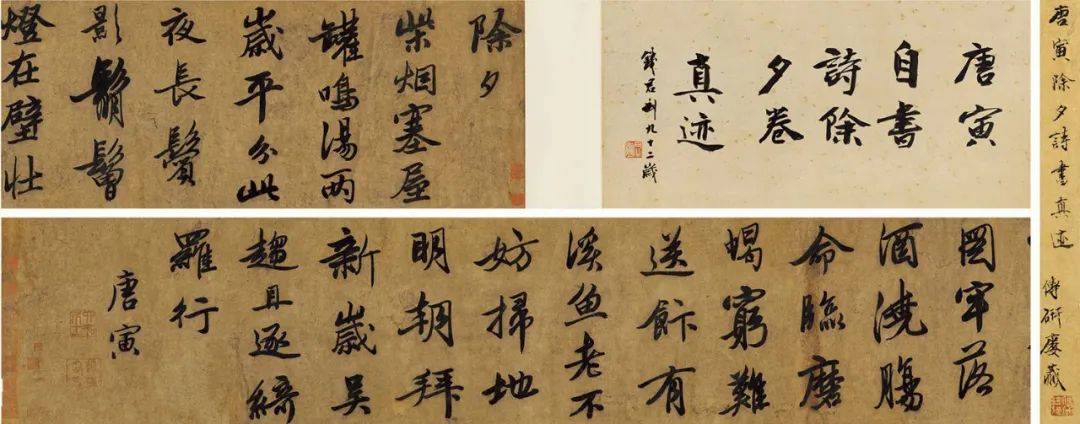 唐寅除夕詩書真迹
唐寅
自書
詩除
夕卷
真迹
錢君匋九十二歲
除夕
柴烟塞屋
罐鳴湯兩
歲平分此
夜長鬢
影鬅鬙
燈在壁壯
圖牢落
酒澆腸
命臨磨
蝎窮難
送飰有
溪魚老不
妨掃地
明朝拜
新歲吳
趨且逐綺
羅行
唐寅